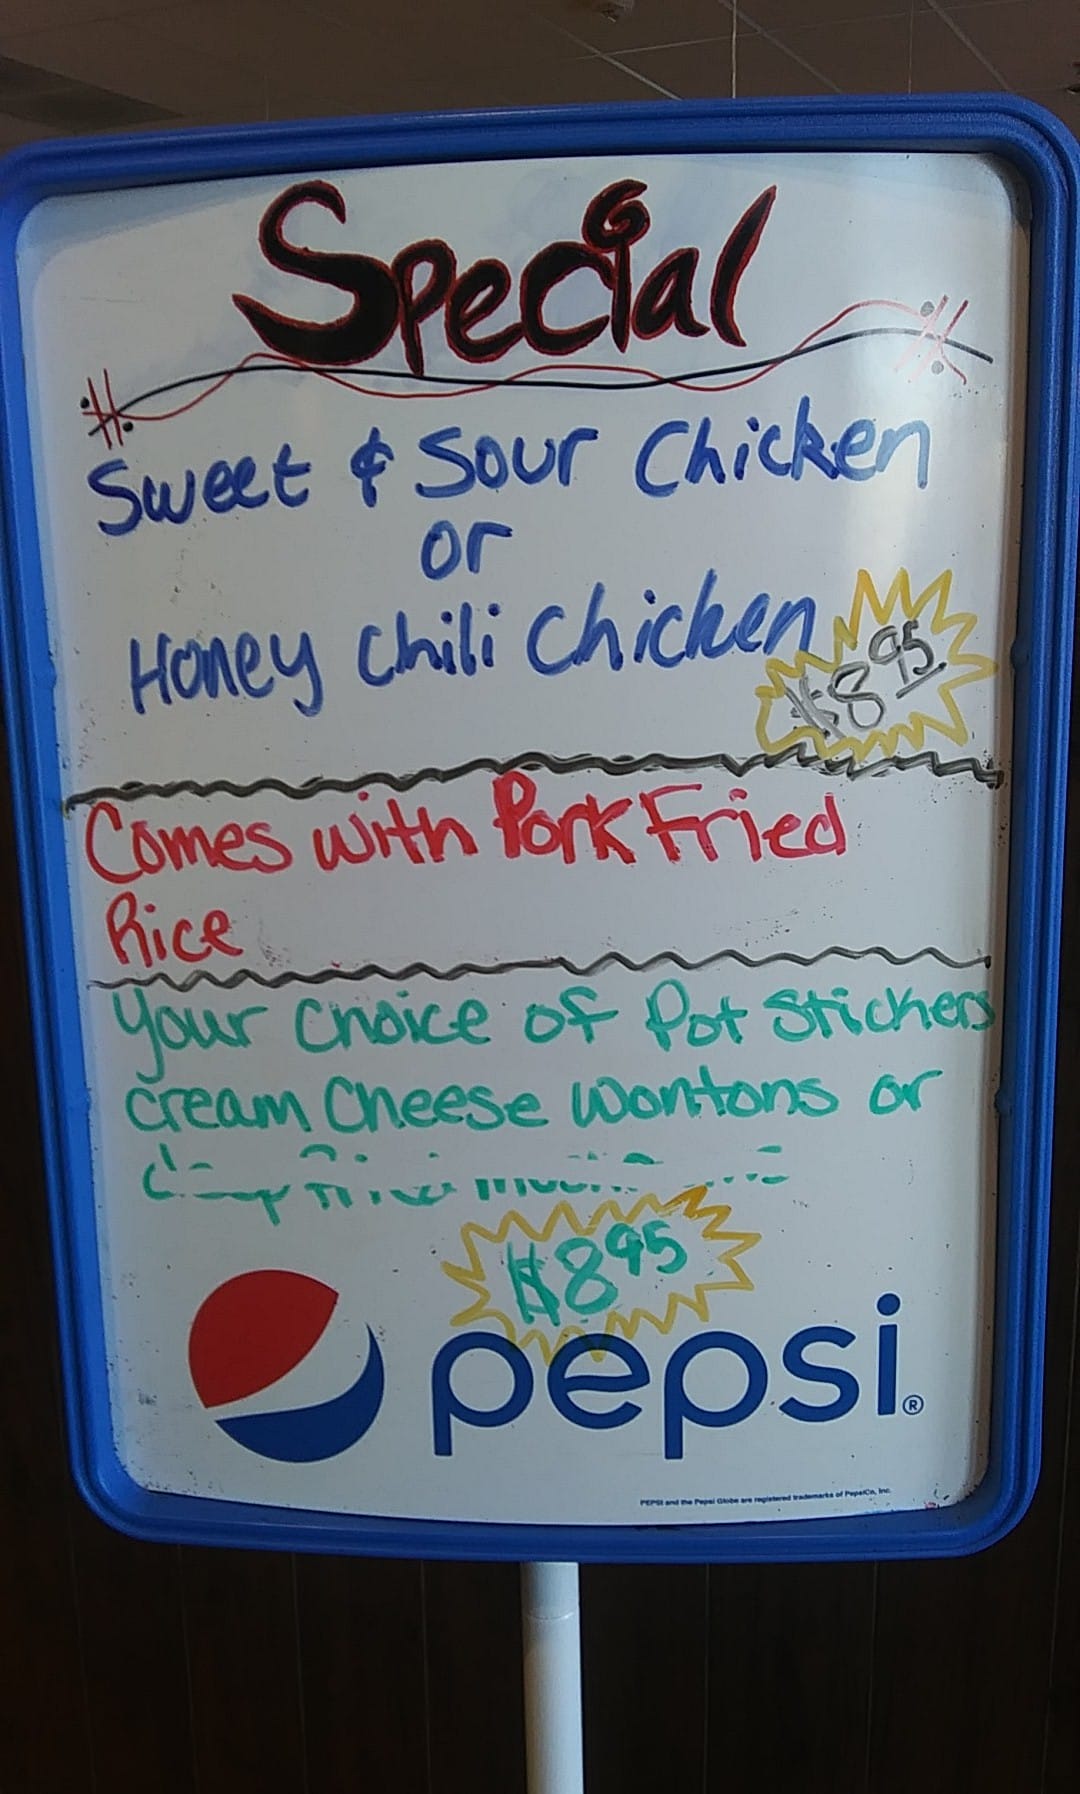 Special
Sweet & Sour Chicken
or
Honey Chili Chicken
$8.95
Comes with Pork Fried
Rice
Your Choice of Pot Stickers
Cream Cheese Wontons or
$8.95
pepsi®
PEPSI and the Pepsi Globe are registered trademarks of PepsiCo, Inc.